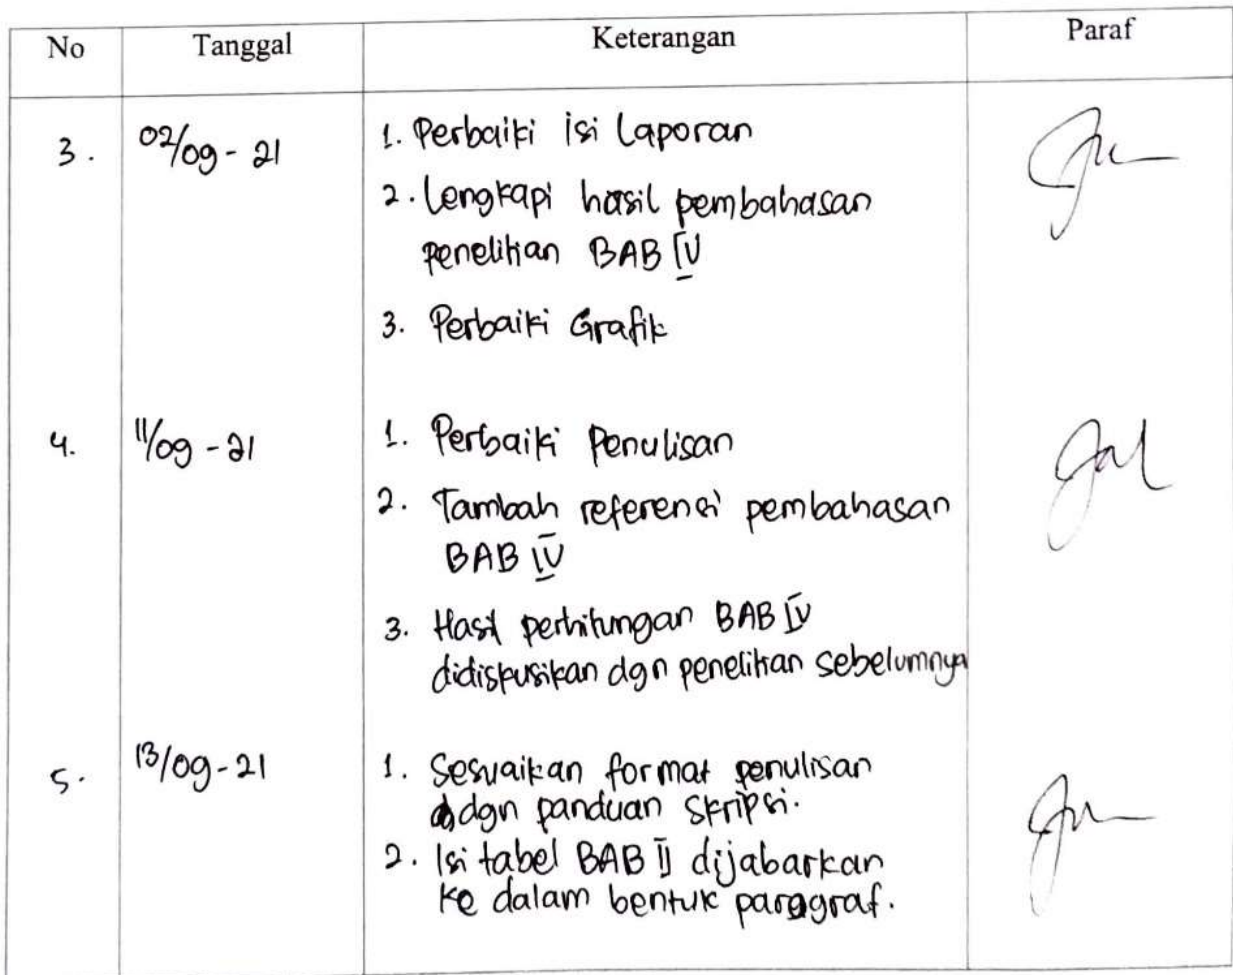 No Tanggal Keterangan Paraf
3. 02/09-21 1. Perbaiki isi Laporan
2. Lengkapi hasil pembahasan
penelitian BAB IV
3. Perbaiki Grafik
4. 11/09-21 1. Perbaiki Penulisan
2. Tambah referensi pembahasan
BAB IV
3. Hasil perhitungan BAB IV
didiskusikan dgn penelitian sebelumnya
5. 13/09-21 1. Sesuaikan format penulisan
dgn panduan skripsi.
2. Isi tabel BAB II dijabarkan
ke dalam bentuk paragraf.